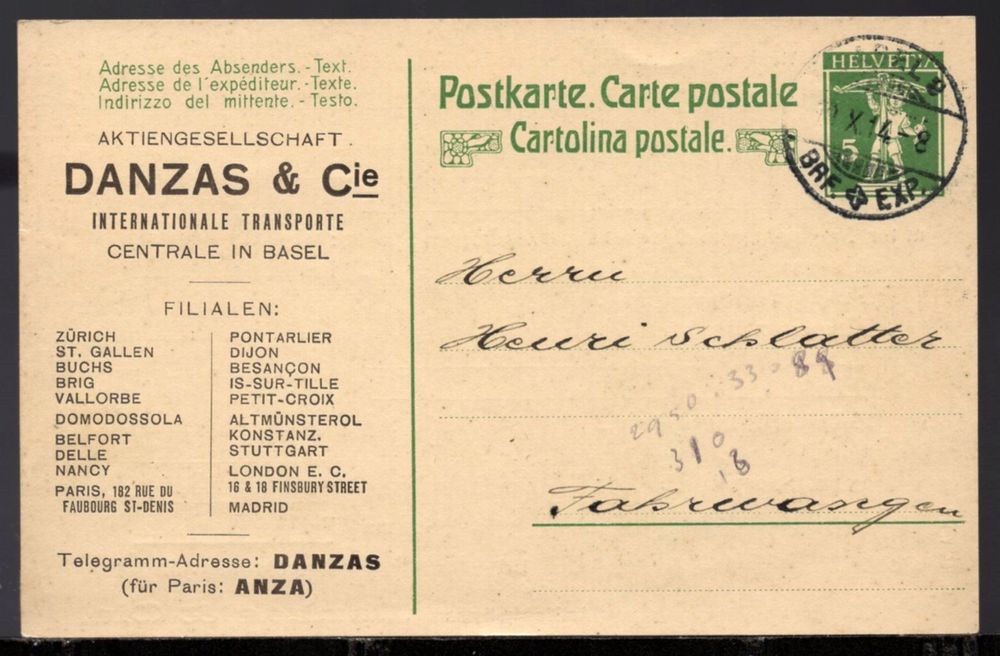 Adresse des Absenders.-Text.
Adresse de l'expéditeur.-Texte.
Indirizzo del mittente.-Testo.
AKTIENGESELLSCHAFT.
DANZAS & Cie
INTERNATIONALE TRANSPORTE
CENTRALE IN BASEL
FILIALEN:
ZÜRICH
ST. GALLEN
BUCHS
BRIG
VALLORBE
DOMODOSSOLA
BELFORT
DELLE
NANCY
PARIS, 182 RUE DU
FAUBOURG ST-DENIS
PONTARLIER
DIJON
BESANÇON
IS-SUR-TILLE
PETIT-CROIX
ALTMÜNSTEROL
KONSTANZ.
STUTTGART
LONDON E. C.
16 & 18 FINSBURY STREET
MADRID
Telegramm-Adresse: DANZAS
(für Paris: ANZA)
Postkarte. Carte postale
Cartolina postale.
HELVETIA
5
X.14-8
BRF EXP.
Herrn
Henri Schlatter
2950.33.
310
Fahrwangen